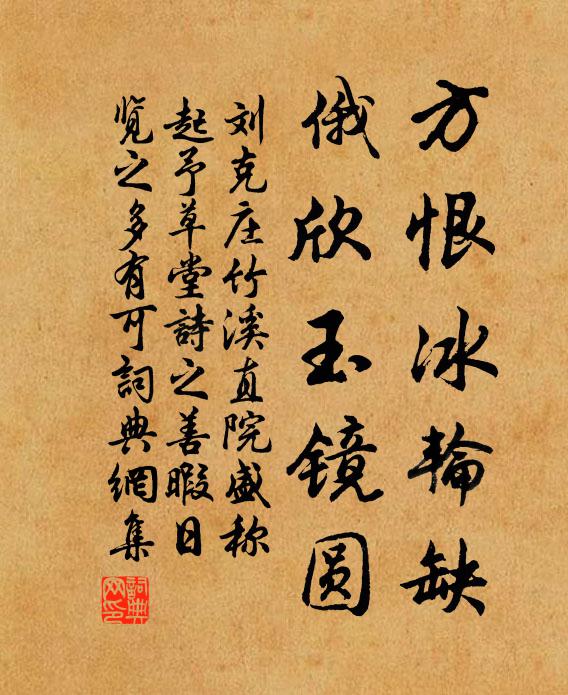 方恨冰輪缺
俄欣玉镜圆
刘克庄竹溪直院盛称
起予草堂詩之善暇日
览之多有可詞典網集
詞典网印